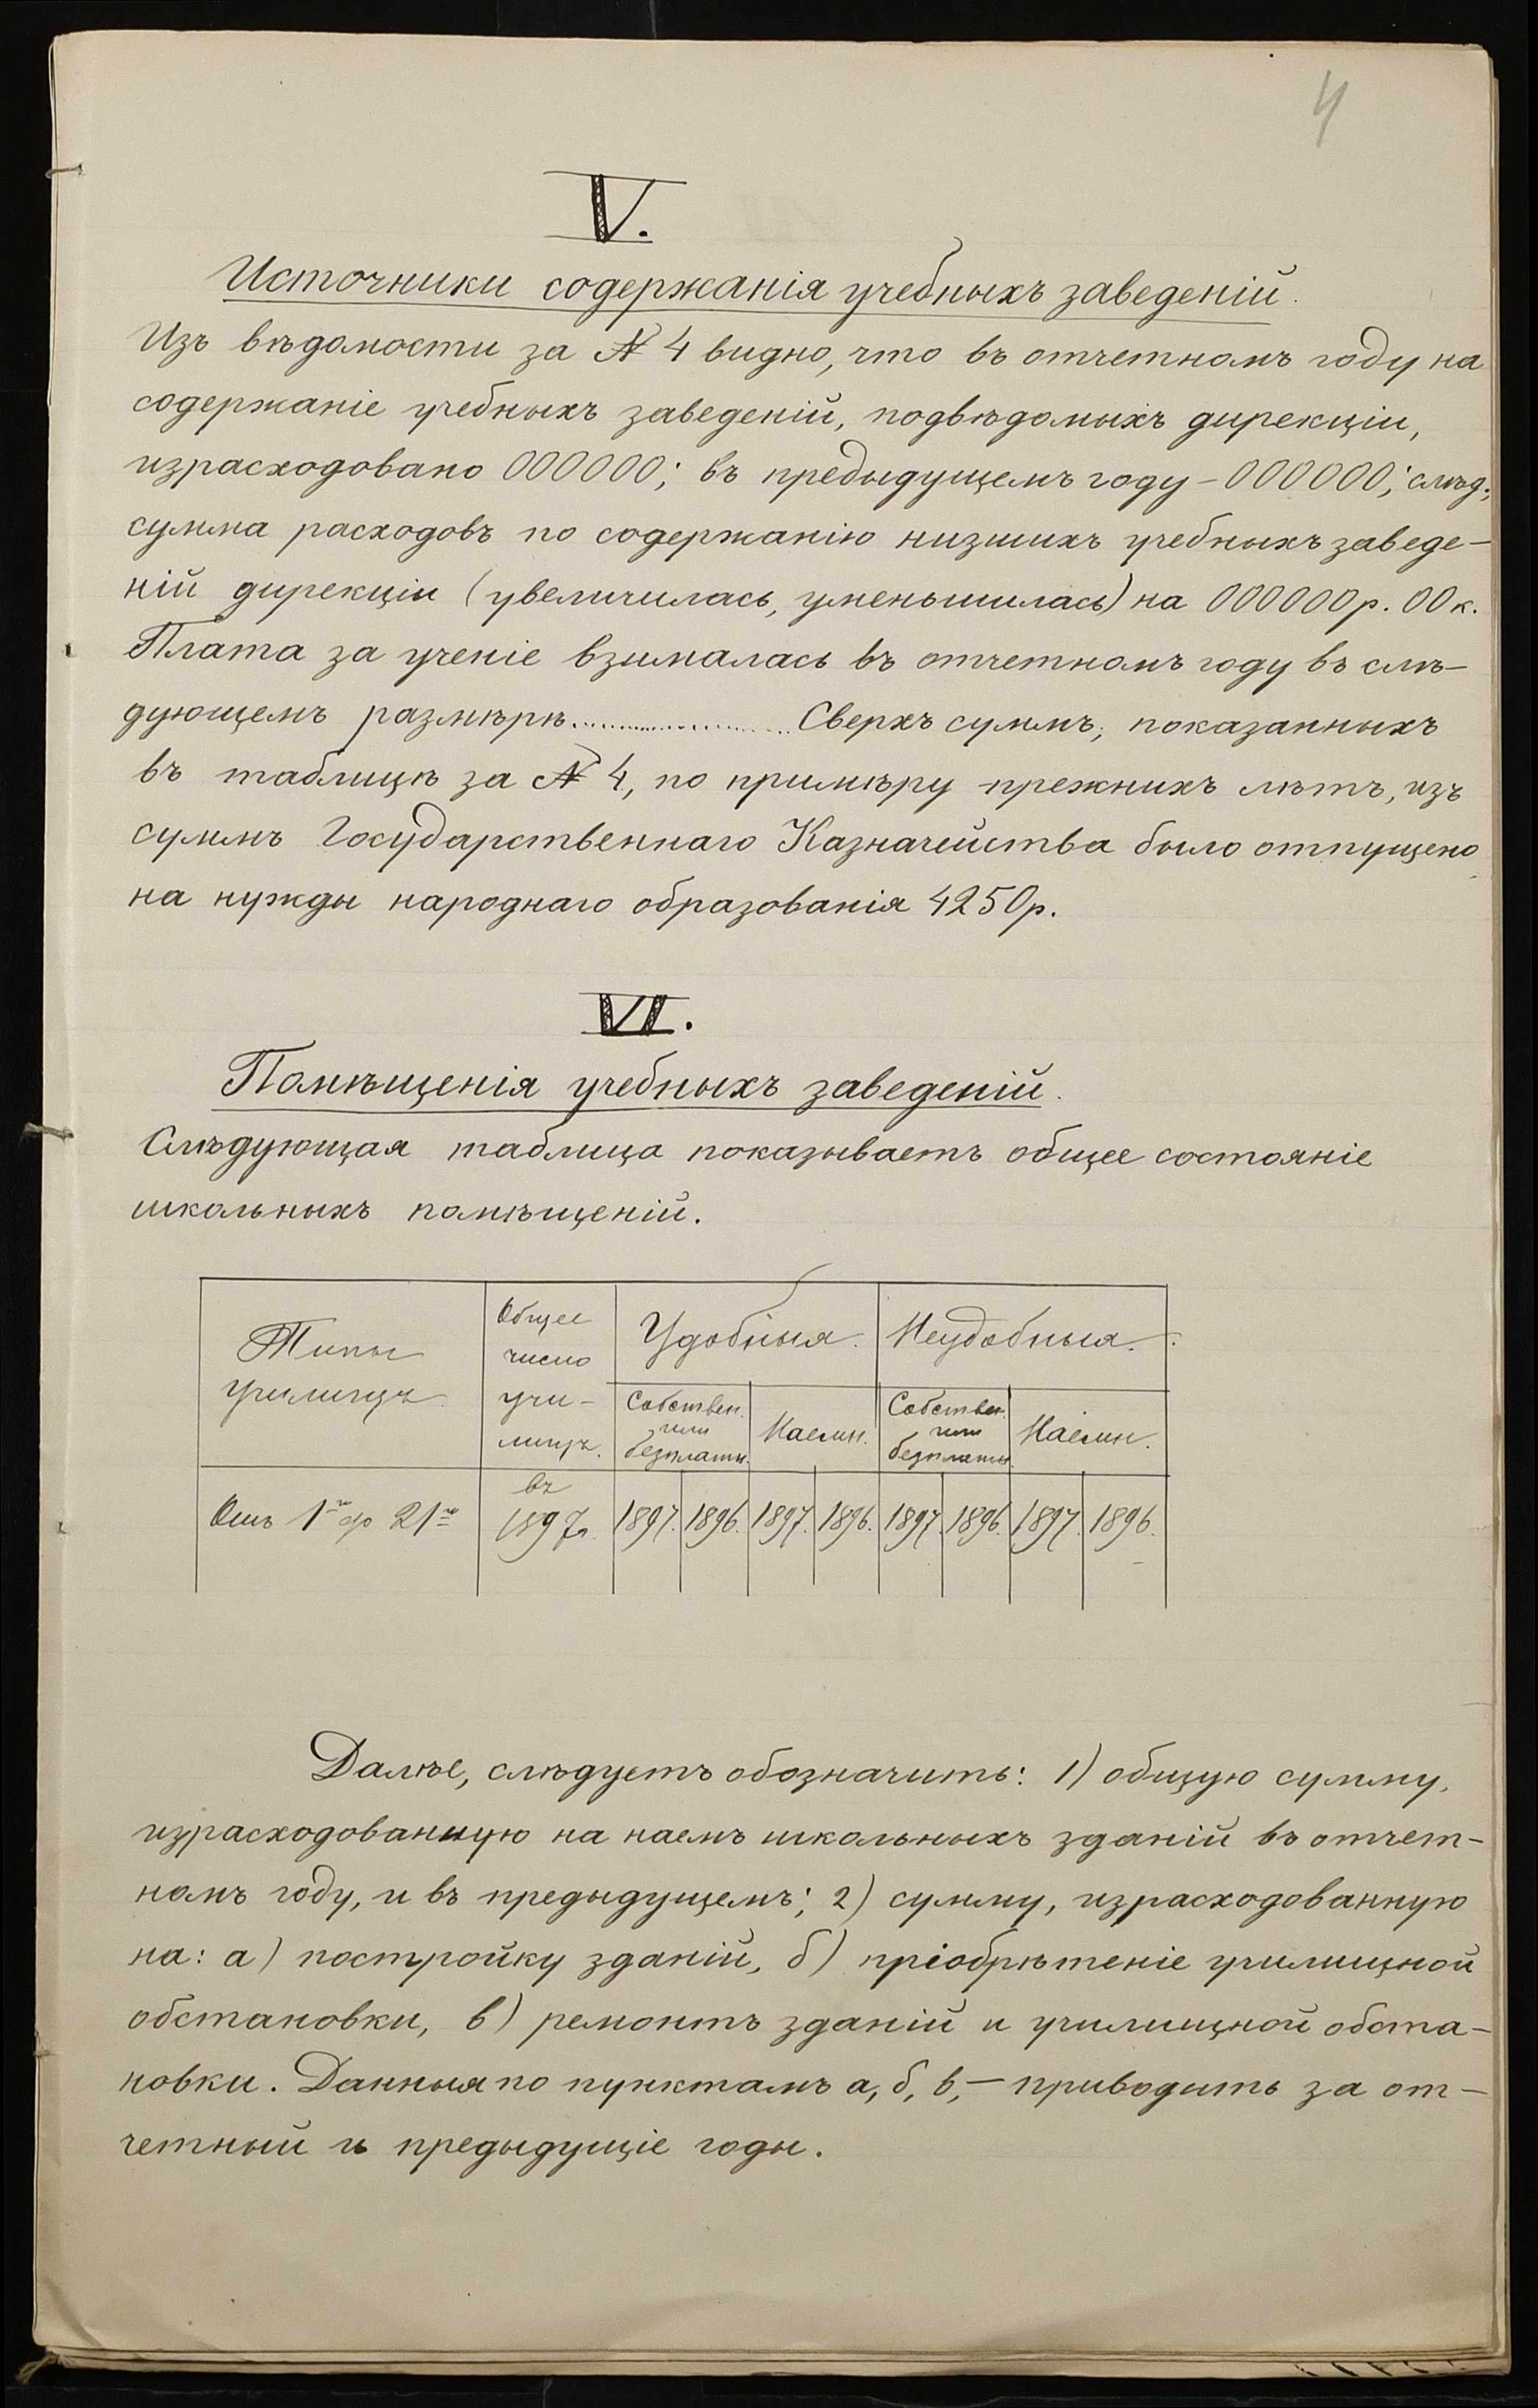 4
V.
Источники содержанія учебныхъ заведеній.
Изъ вѣдомости за № 4 видно, что въ отчетномъ году на
содержаніе учебныхъ заведеній, подвѣдомыхъ дирекціи,
израсходовано 000000; въ предыдущемъ году – 000000; слѣд.,
сумма расходовъ по содержанію низшихъ учебныхъ заведе-
ній дирекціи (увеличилась, уменьшилась) на 000000 р. 00 к.
Плата за ученіе взималась въ отчетномъ году въ слѣ-
дующемъ размѣрѣ.................... Сверхъ суммъ, показанныхъ
въ таблицѣ за № 4, по примѣру прежнихъ лѣтъ, изъ
суммъ Государственнаго Казначейства было отпущено
на нужды народнаго образованія 4250 р.
VI.
Помѣщенія учебныхъ заведеній.
Слѣдующая таблица показываетъ общее состояніе
школьныхъ помѣщеній.
Типы
училищъ
Общее
число
учи-
лищъ.
Удобныя.
Неудобныя.
Собствен.
или
безплатн.
Наемн.
Собствен.
или
безплатн.
Наемн.
Отъ 1го до 21го
въ
1897 г.
1897. 1896. 1897. 1896. 1897. 1896. 1897. 1896.
Далѣе, слѣдуетъ обозначить: 1) общую сумму,
израсходованную на наемъ школьныхъ зданій въ отчет-
номъ году, и въ предыдущемъ; 2) сумму, израсходованную
на: а) постройку зданій, б) пріобрѣтеніе училищной
обстановки, в) ремонтъ зданій и училищной обста-
новки. Данныя по пунктамъ а, б, в, – приводить за от-
четный и предыдущіе годы.